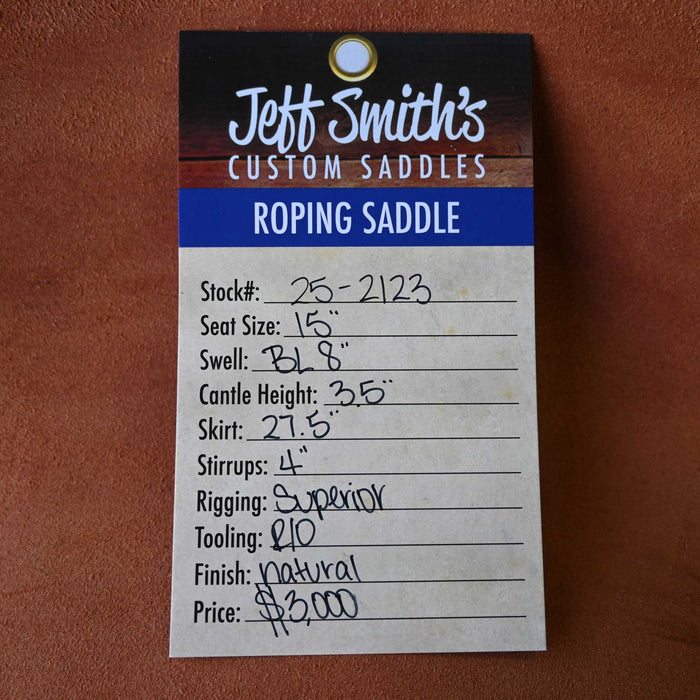 Jeff Smith's
CUSTOM SADDLES
ROPING SADDLE
Stock#: 25-2123
Seat Size: 15"
Swell: BL 8"
Cantle Height: 3.5"
Skirt: 27.5"
Stirrups: 4"
Rigging: Superior
Tooling: R/O
Finish: natural
Price: $3,000